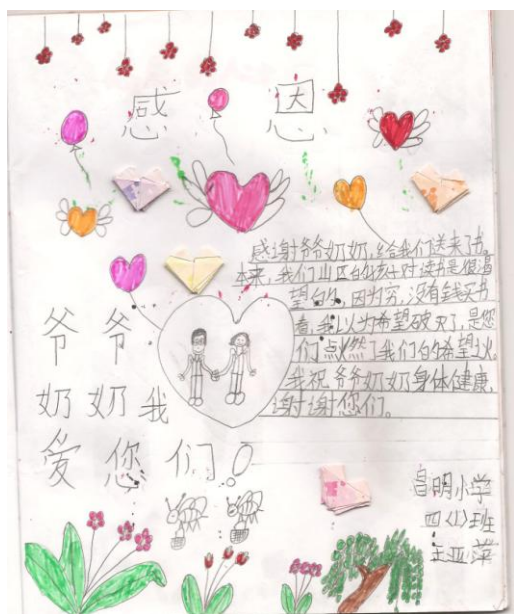 感 恩
感谢爷爷奶奶,给我们送来了书。
本来,我们山区的孩子对读书是很渴
望的。因为穷,没有钱买书
看,我以为希望破灭了,是您
们点燃了我们的希望火。
我祝爷爷奶奶身体健康,
谢谢您们。
爷爷
奶奶我
爱您们!
昌明小学
四(1)班
王亚萍